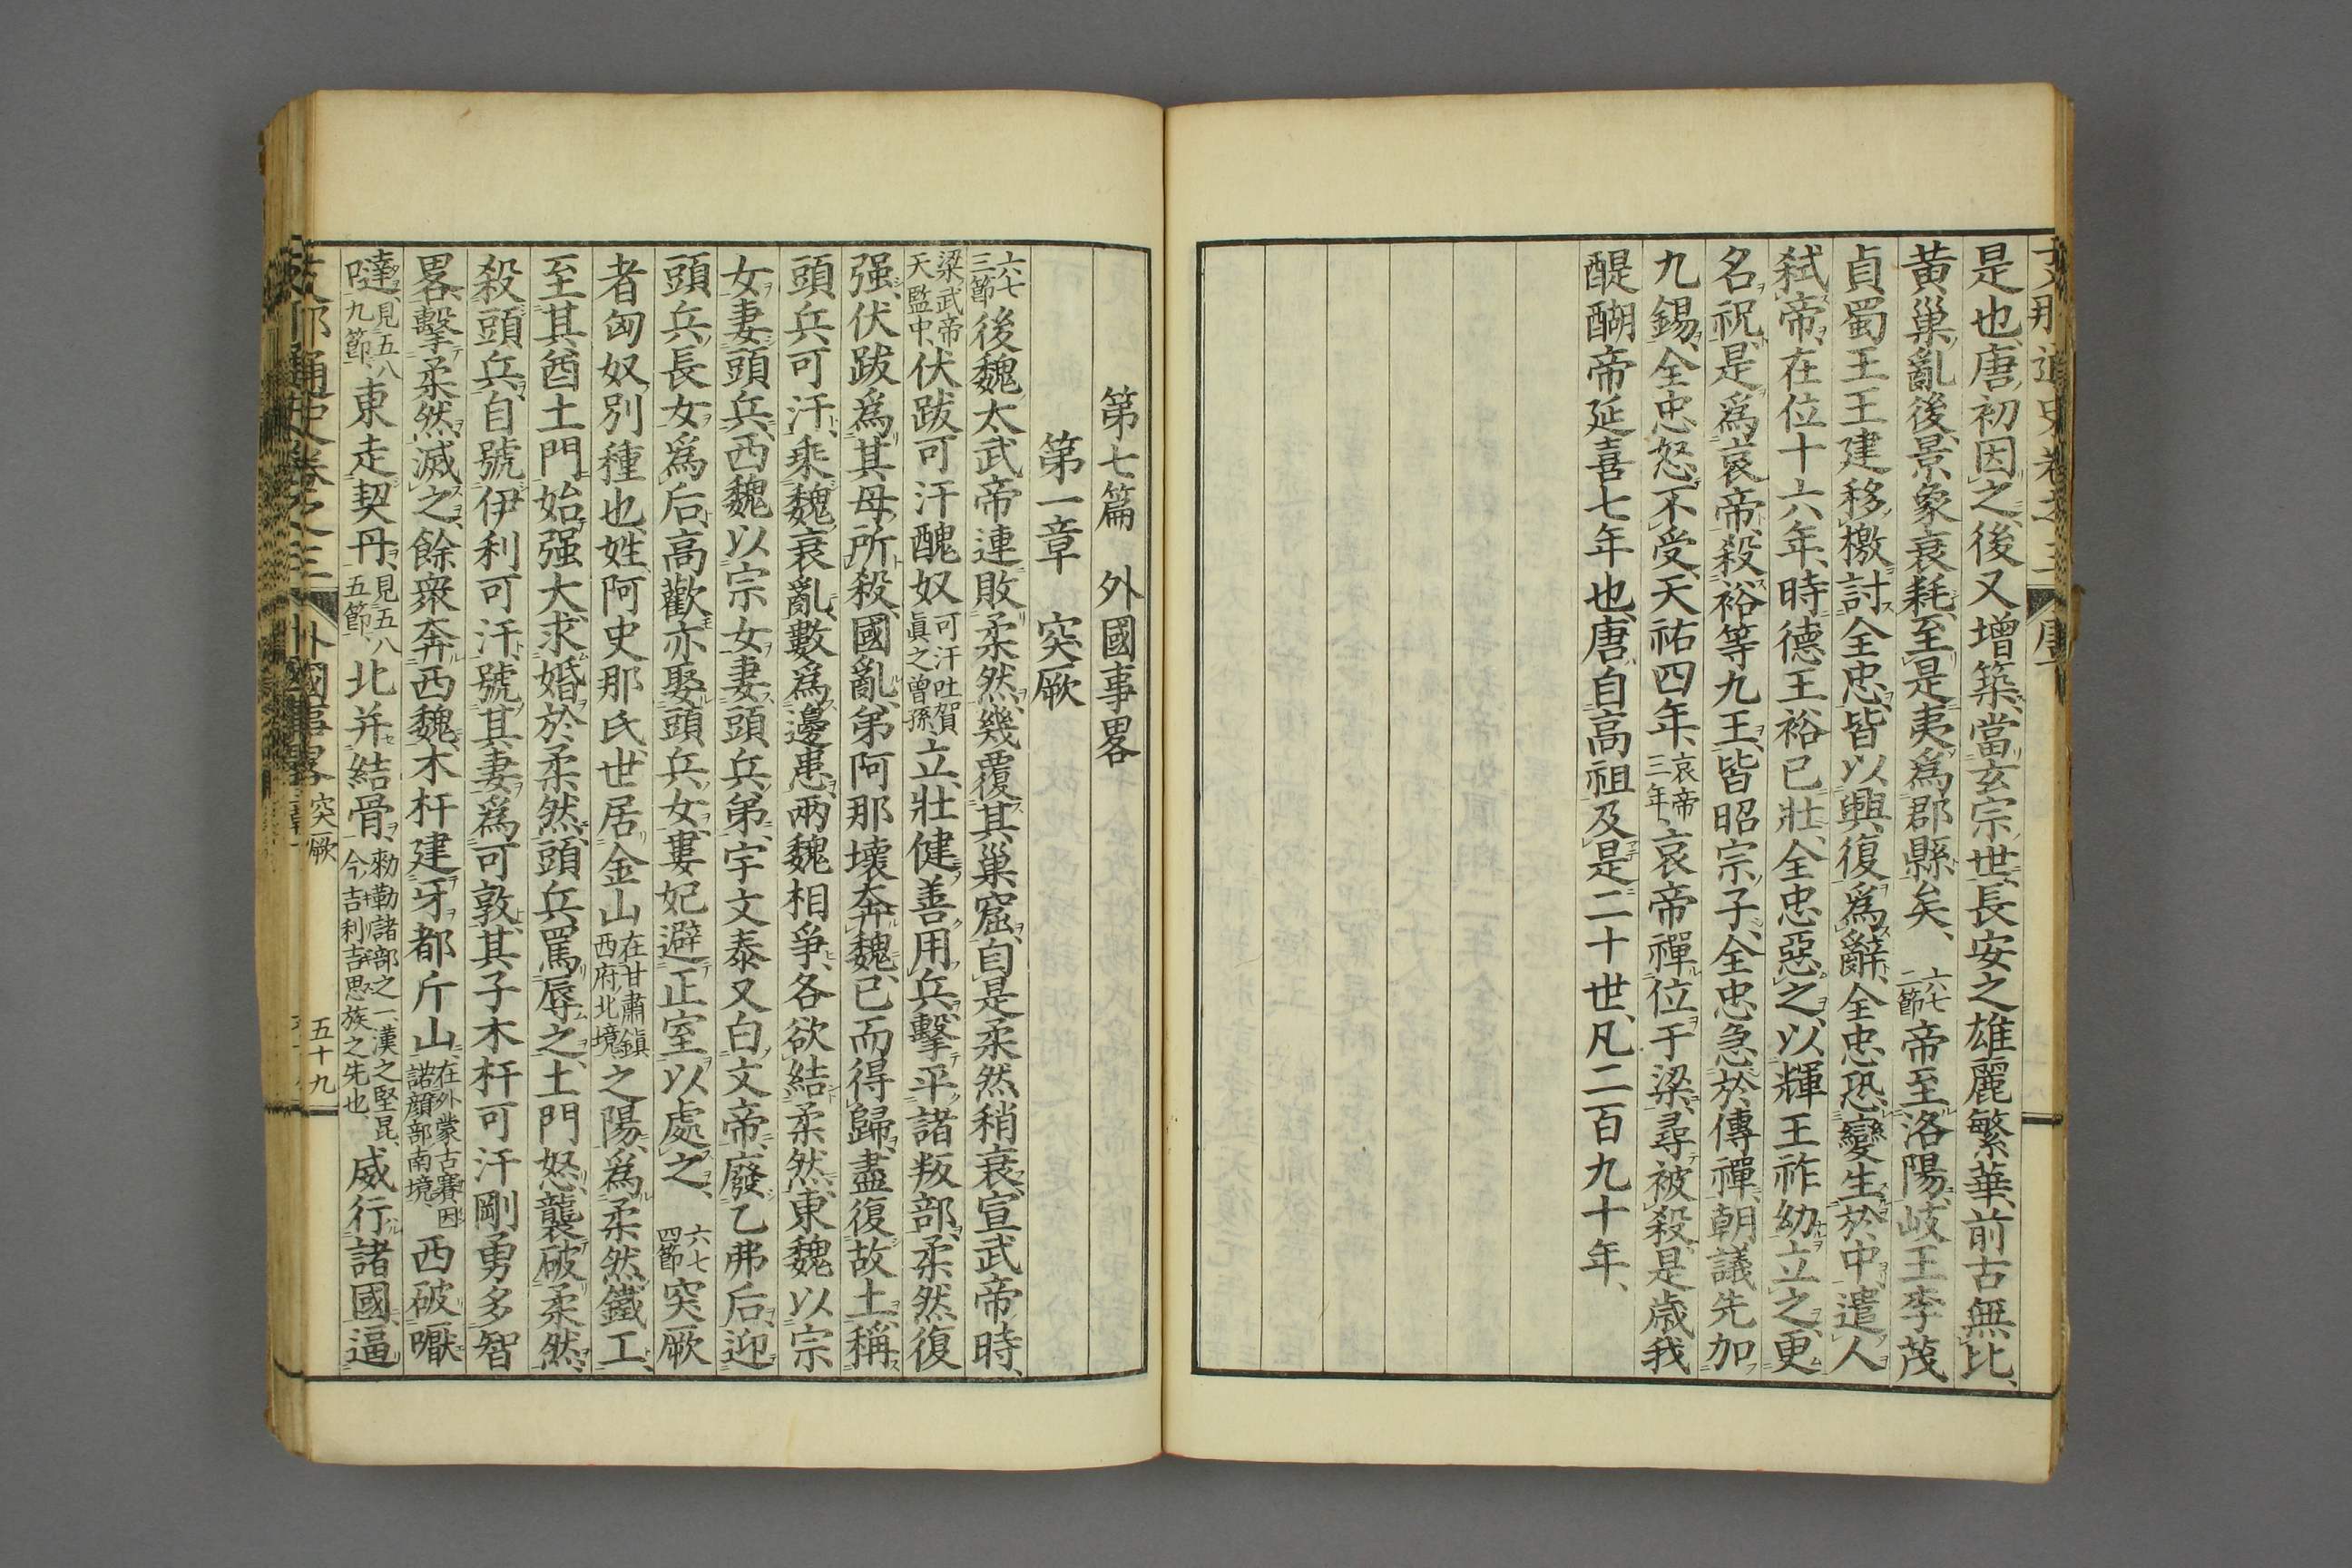 支那通史卷之三 唐下
是也、唐初因之、後又增築、當玄宗世、長安之雄麗繁華、前古無比、
黃巢亂後、景象衰耗、至是夷爲郡縣矣、 六七二節 帝至洛陽、岐王李茂
貞蜀王王建移檄討全忠、皆以興復爲辭、全忠恐變生於中、遣人
弑帝、在位十六年、時德王裕已壯、全忠惡之、以輝王祚幼立之、更
名祝、是爲哀帝、殺裕等九王、皆昭宗子、全忠急於傳禪、朝議先加
九錫、全忠怒不受、天祐四年、哀帝三年、哀帝禪位于梁、尋被殺、是歲我
醍醐帝延喜七年也、唐自高祖及是二十世、凡二百九十年、
第七篇 外國事畧
第一章 突厥
六七三節 後魏太武帝連敗柔然、幾覆其巢窟、自是柔然稍衰、宣武帝時、
梁武帝天監中、伏跋可汗醜奴 可汗吐賀眞之曾孫、立、壯健善用兵、擊平諸叛部、柔然復
强、伏跋爲其母所殺、國亂、弟阿那壞奔魏、已而得歸、盡復故土、稱
頭兵可汗、乘魏衰亂、數爲邊患、兩魏相爭、各欲結柔然、東魏以宗
女妻頭兵、西魏以宗女妻頭兵弟、宇文泰又白文帝、廢乙弗后、迎
頭兵長女爲后、高歡亦娶頭兵女、婁妃避正室以處之、 六七四節 突厥
者匈奴別種也、姓阿史那氏、世居金山 在甘肅鎭西府北境 之陽、爲柔然鐵工、
至其酋土門、始强大、求婚於柔然、頭兵罵辱之、土門怒、襲破柔然、
殺頭兵、自號伊利可汗、號其妻爲可敦、其子木杆可汗剛勇多智
畧、擊柔然滅之、餘衆奔西魏、木杆建牙都斤山、在外蒙古賽因諾顏部南境、西破嚈
噠、見五八九節、東走契丹、見五八五節、北并結骨、勅勒諸部之一、漢之堅昆、今吉利吉思族之先也、威行諸國、逼
支那通史卷之三 外國事畧 突厥 五十九